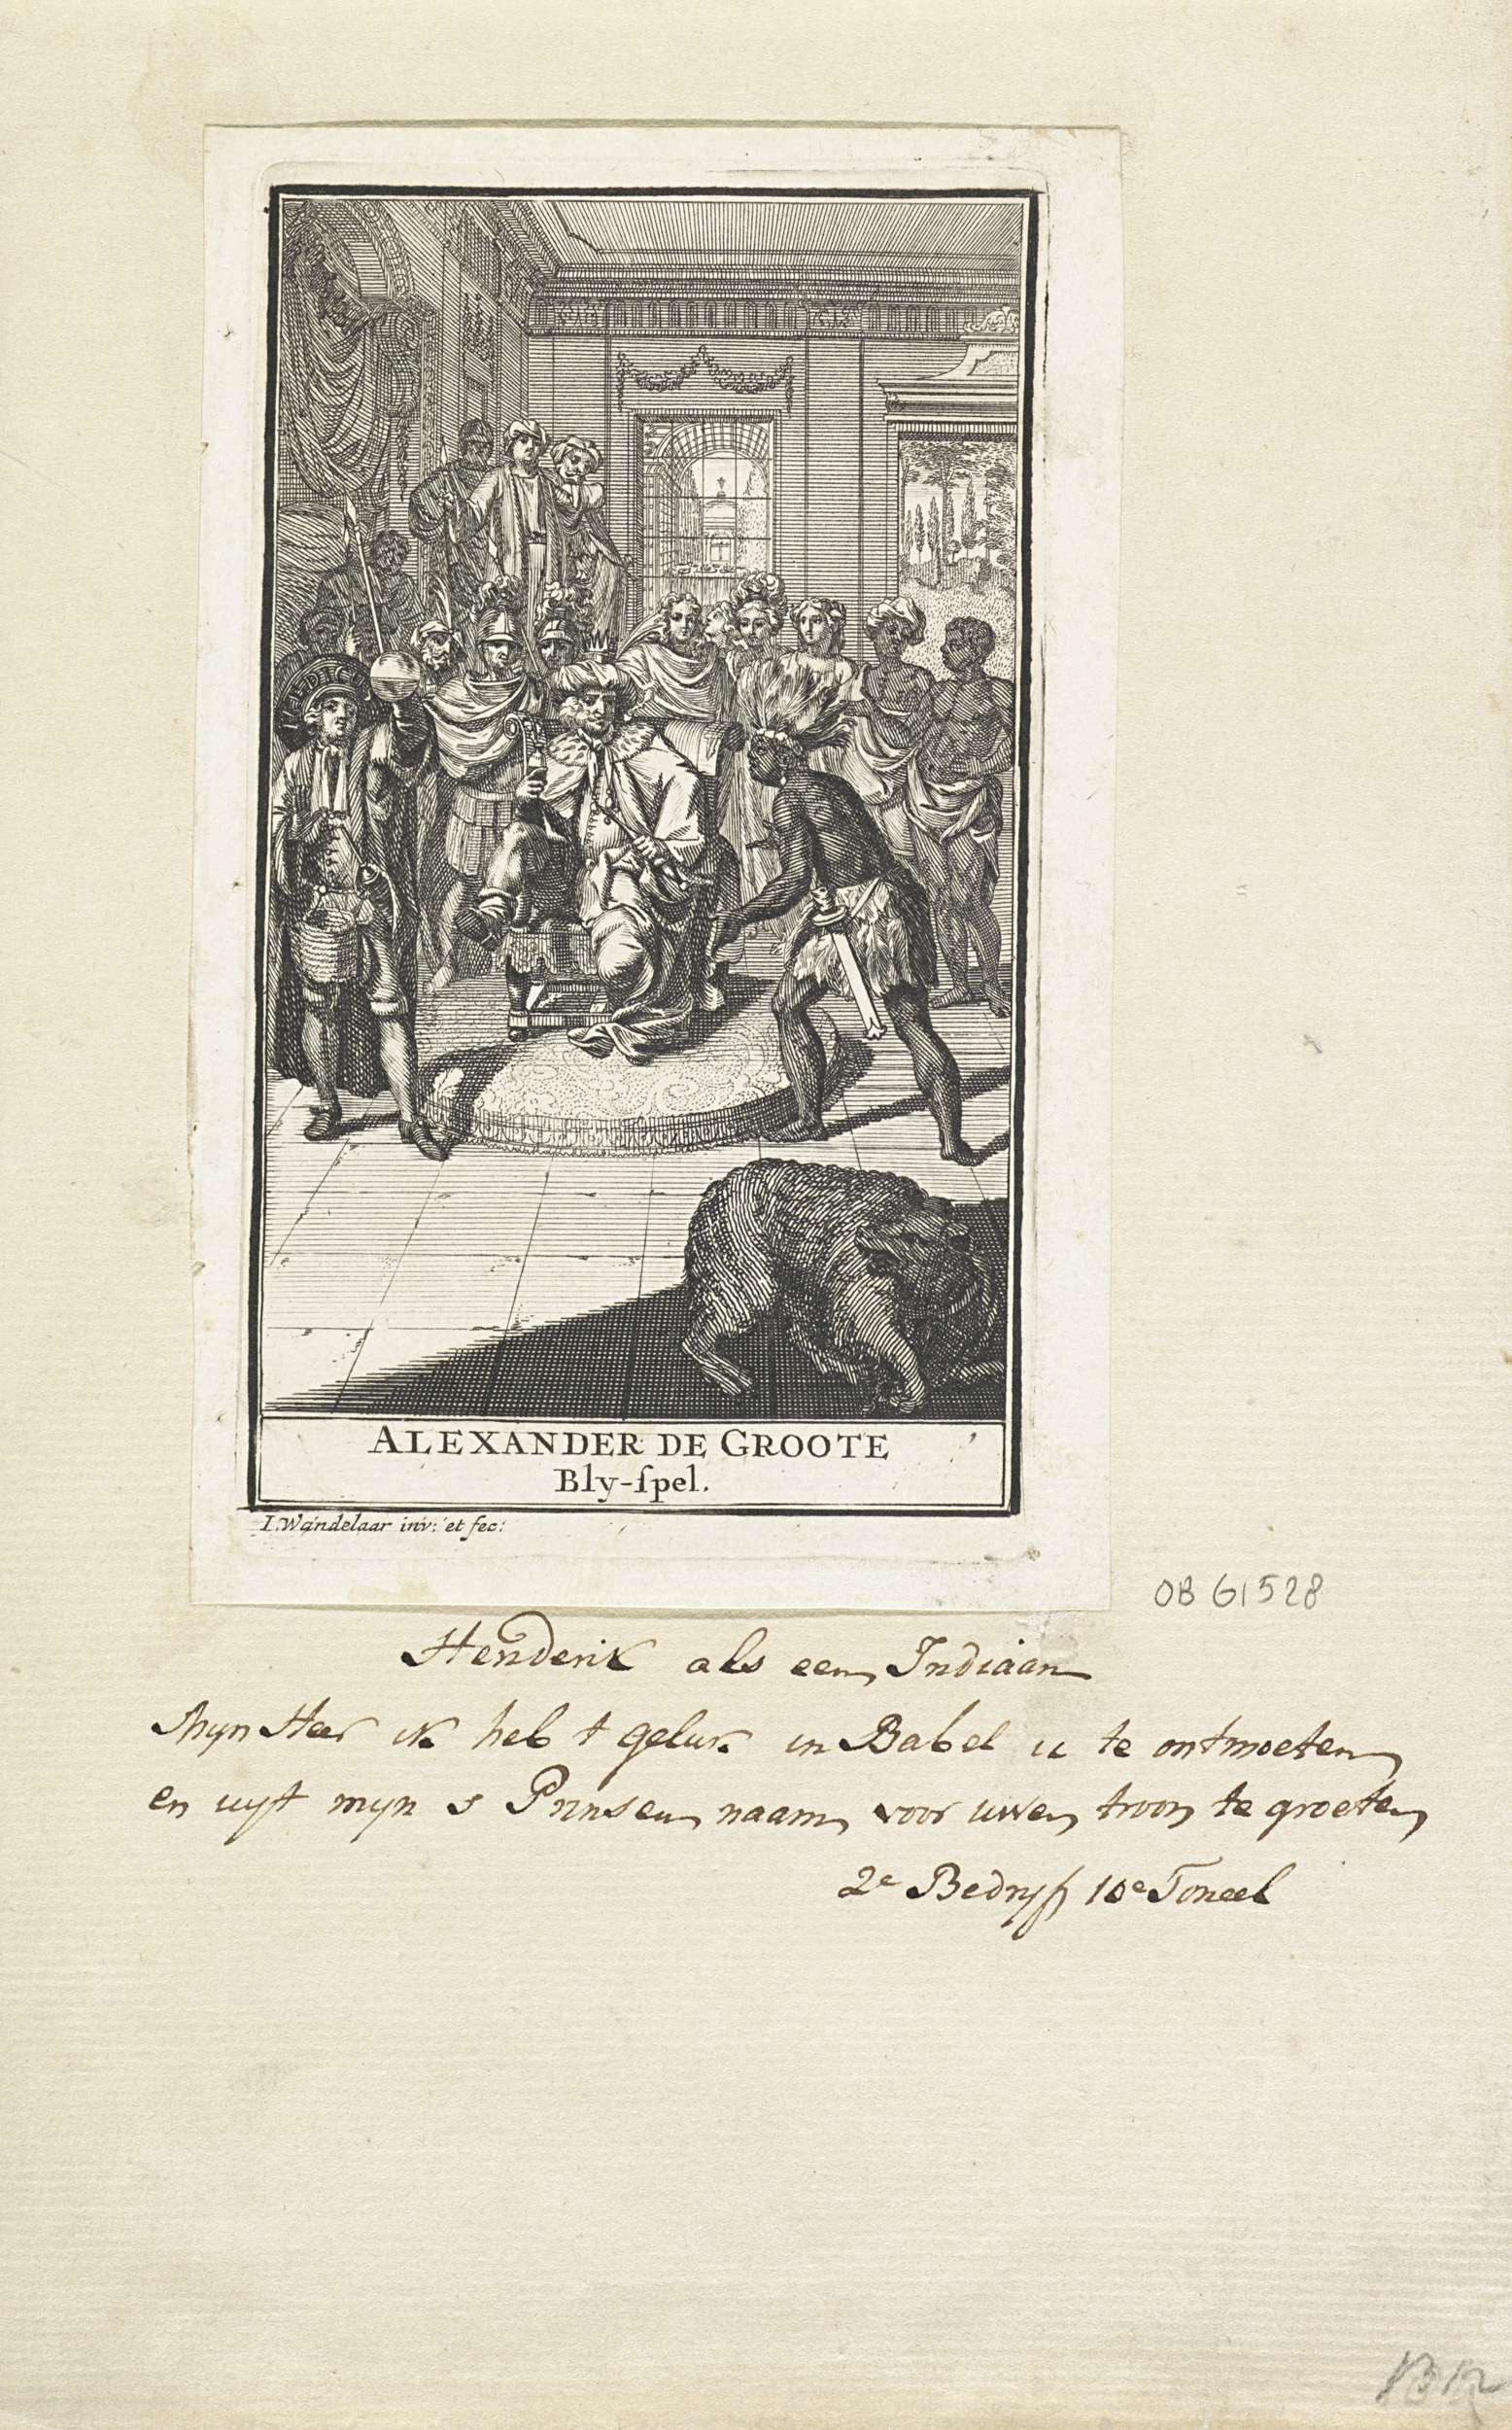 ALEXANDER DE GROOTE
Bly-ſpel.
I. Wandelaar inv: et fec:
OB 61528
Henderik als een Indiaan
Mijn Heer ik heb t geluk in Babel u te ontmoeten
en uyt mijn s Prinsen naam voor uwen troon te groeten
2e Bedryf 10e Toneel